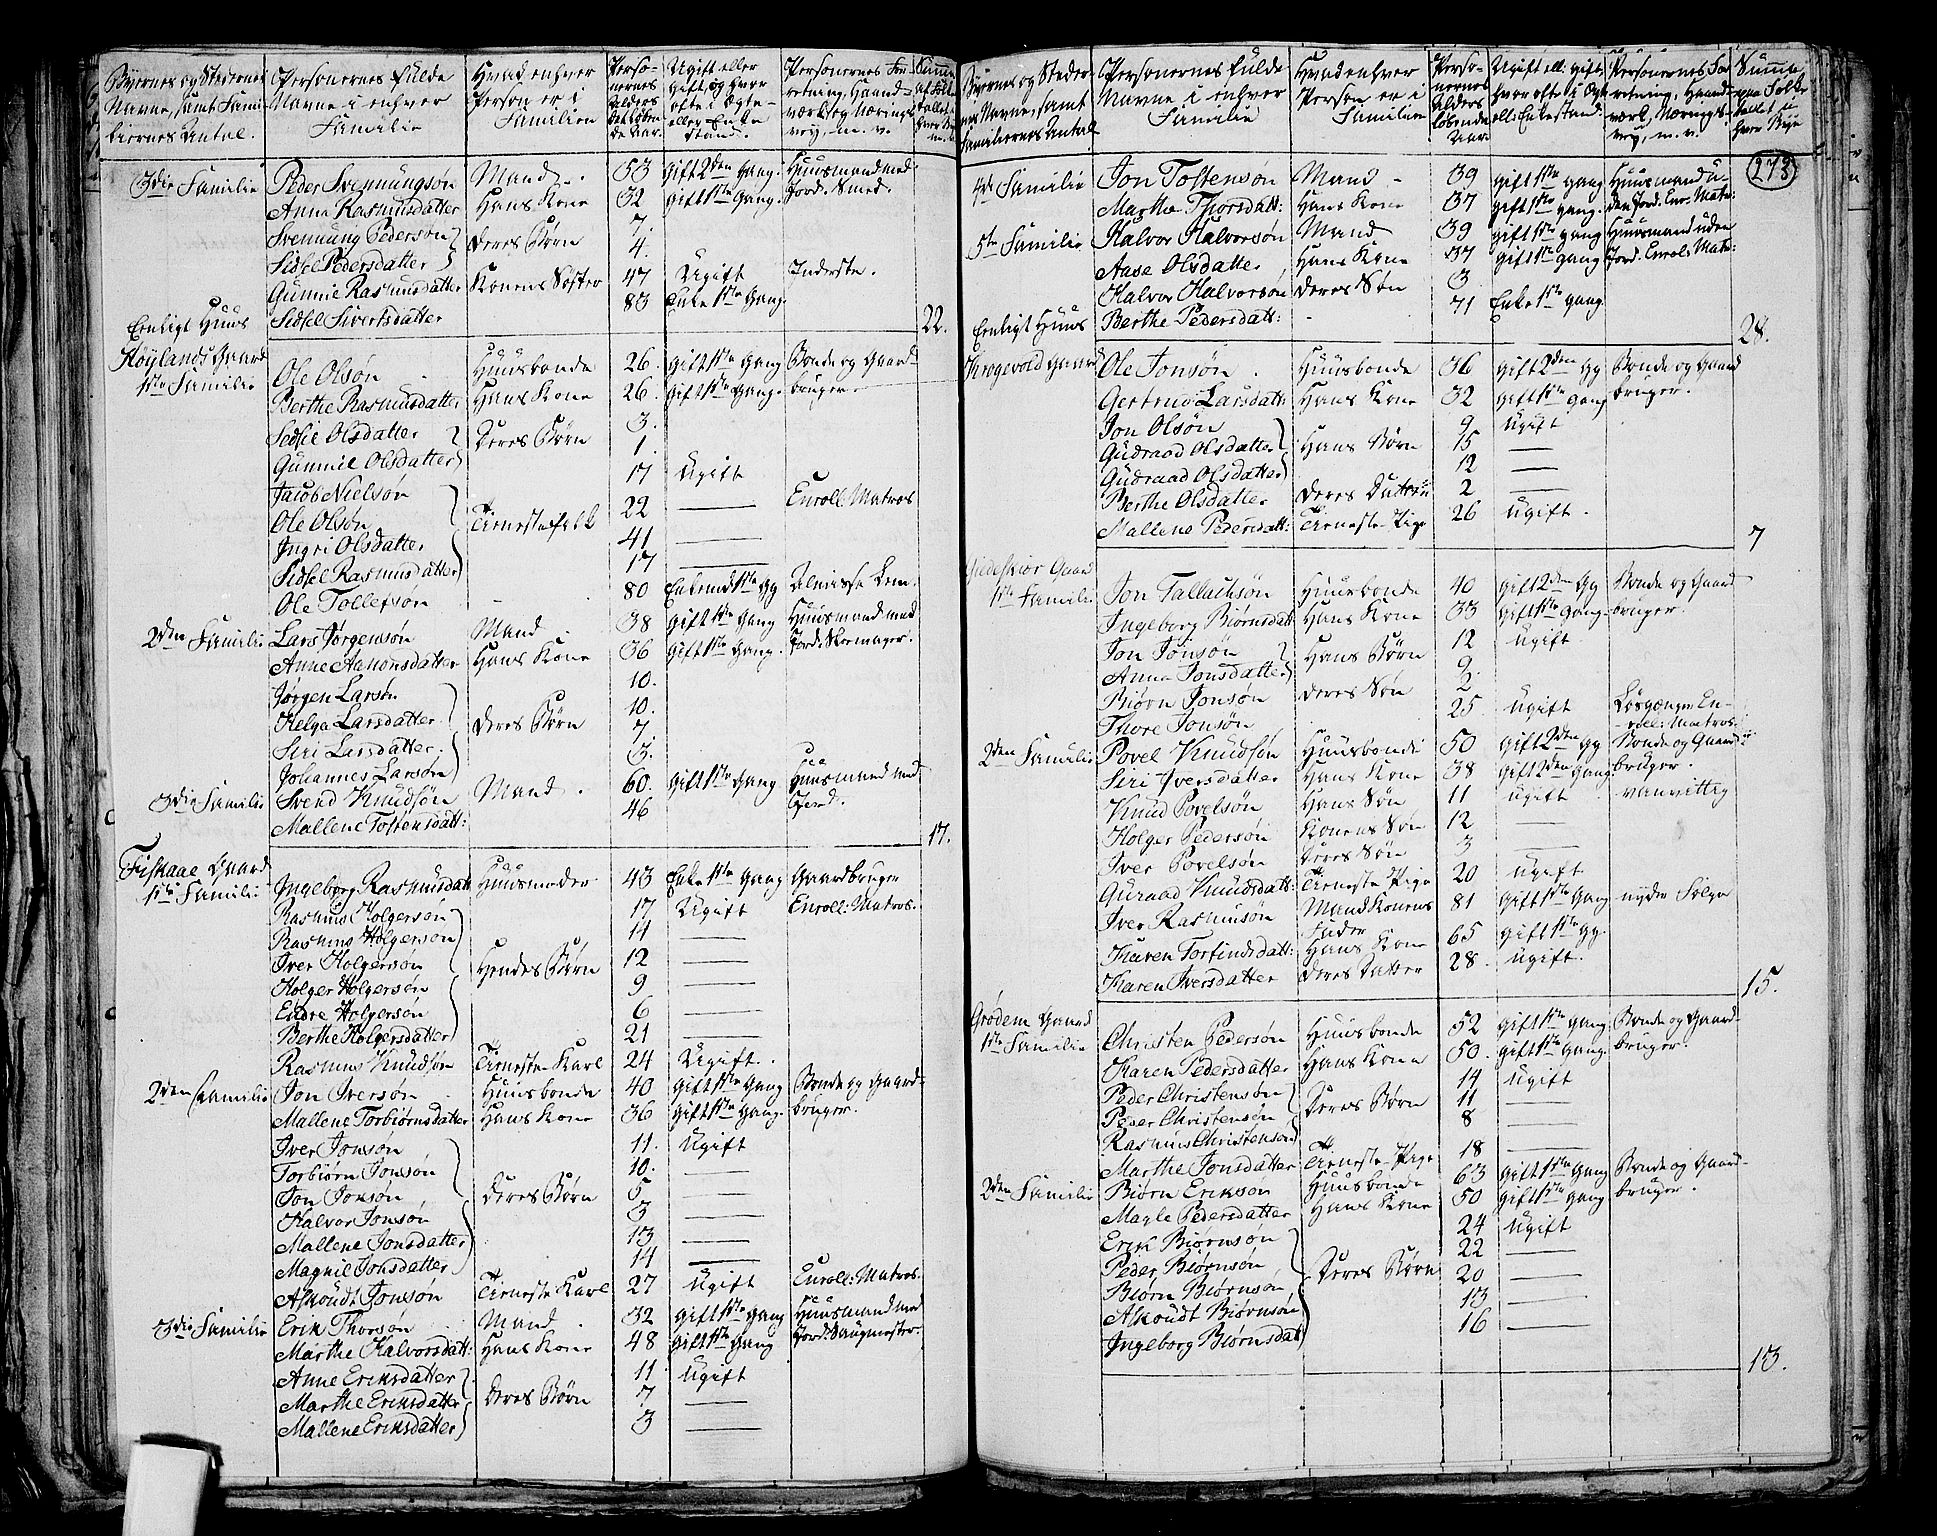 Byernes og Stedernes Navne, samt Familiernes Antal.
Personernes fulde Navne i enhver Familie
Hvad enhver Person er i Familien
Personernes Alders bel: løbende Aar.
Ugift eller Gift, og hvor ofte i Ægte- eller Enkestand.
Personernes Forretning, Haandværk og Næringsvey, m. v.
3die Familie Peder Svennungsøn Mand 53 Gift 2den Gang. Huusmand med Jord. Smed.
Anna Rasmusdatter Hans Kone 32 Gift 1ste Gang.
Svennung Pedersøn Deres Børn 7.
Sidsel Pedersdatter 4.
Gunnie Rasmusdatter Konens Søster 47 Ugift Inderste.
Eenligt Huus Sidsel Sivertsdatter 83 Enke 1ste Gang. 22.
Høylands Gaard
1ste Familie Ole Olsøn Huusbonde 26. Gift 1ste Gang Bonde og Gaardbruger.
Berthe Rasmusdatter Hans Kone 26. Gift 1ste Gang.
Sidsel Olsdatter Deres Børn 3.
Gunnil Olsdatter 1.
Jacob Nielsøn 17 Ugift
Ole Olsøn Tienestefolk 22 — Enroll: Matros
Ingri Olsdatter 41 —
Sidsel Rasmusdatter 17 —
Ole Tollefsøn 80 Enkemd 1ste Gg Almisse Lem.
2den Familie Lars Jørgensøn Mand 38 Gift 1ste Gang Huusmand med Jord. Skomager.
Anne Aanonsdatter Hans Kone 36 Gift 1ste Gang.
Jørgen Larsøn 10.
Helga Larsdatter Deres Børn 10.
Siri Larsdatter 7
Johannes Larsøn 3.
3die Familie Svend Knudsøn Mand 60. Gift 1ste Gang Huusmand med Jord.
Mallene Tostensdatt: 46 17.
Fiskaae Gaard
1ste Familie Ingeborg Rasmusdatt Huusmoder 43 Enke 1ste Gang Gaardbruger
Rasmus Holgersøn 17 Ugift Enroll: Matros.
Rasmus Holgersøn 14 —
Iver Holgersøn Hendes Børn 12 —
Holger Holgersøn 9 —
Endre Holgersøn 6 —
Berthe Holgersdatter 21 —
Rasmus Knudsøn Tieneste Karl 24 Ugift.
2den Familie Jon Iversøn Huusbonde 40 Gift 1ste Gang Bonde og Gaardbruger.
Mallene Torbiørnsdatter Hans Kone 36 Gift 1ste Gang.
Iver Jonsøn 11. Ugift
Torbiørn Jonsøn 10. —
Jon Jonsøn Deres Børn 5 —
Halvor Jonsøn 3 —
Mallene Jonsdatter 13 —
Magnil Jonsdatter 14 —
Asloudt Jonsøn Tieneste Karl 27 Ugift Enroll: Matros.
3die Familie Erik Thorsøn Mand 32 Gift 1ste Gang Huusmand med Jord. Saugmester.
Marthe Halvorsdatt: Hans Kone 48 Gift 1ste Gang
Anne Eriksdatter 11 Ugift
Marthe Eriksdatter Deres Børn 7 —
Mallene Eriksdatter 3 —
Byernes og Stedernes Navne, samt Familiernes Antal
Personernes fulde Navne i enhver Familie
Hvad enhver Person er i Familien
Personernes Alders løbende Aar
Ugift ell: gift, hvor ofte i Ægte ell: Enkestand.
Personernes Forretning, Haandværk, Næringsvey, m. v.
Summa paa Folketallet i hver Bye
273
4de Familie Jon Tostensøn Mand 39 Gift 1ste Gang Huusmand uden Jord. Enr. Matr:
Marthe Thorsdatt: Hans Kone 37 Gift 1ste Gang.
5te Familie Halvor Halvorsøn Mand 39 Gift 1ste Gang Huusmand uden Jord. Enroll: Matr:
Aase Olsdatter Hans Kone 37 Gift 1ste Gang
Halvor Halvorsøn Deres Søn 3
Eenligt Huus Berthe Pedersdatt: 71 Enke 1ste Gang. 28.
Krogevold Gaard Ole Jonsøn Huusbonde 36 Gift 2den Gg Bonde og Gaardbruger.
Gertrud Larsdatt: Hans Kone 32 Gift 1ste Gang
Jon Olsøn 9 Ugift
Gudraad Olsdatter Hans Børn 15 —
Gudraad Olsdatter 12 —
Berthe Olsdatter Deres Datter 2 —
Mallene Pedersdatt: Tieneste Pige 26 Ugift. 7
Gaard
1ste Familie Jon Tallachsøn Huusbonde 40 Gift 2den Gg Bonde og Gaardbruger.
Ingeborg Biørnsdatt Hans Kone 33 Gift 1ste Gang.
Jon Jonsøn Hans Børn 12 Ugift
Anna Jonsdatter 9.
Biørn Jonsøn Deres Søn 2
Thore Jonsøn 25. Ugift Løsgænger Enroll: Matros.
2den Familie Povel Knudsøn Huusbonde 50 Gift 2den Gg Bonde og Gaardbruger.
Siri Iversdatter Hans Kone 38 Gift 2den Gang
Knud Povelsøn Hans Søn 11 Ugift vanvittig
Holger Pedersøn Konens Søn 12 —
Iver Povelsøn Deres Søn 3 —
Guraad Knudsdatt: Tieneste Pige 20 Ugift
Iver Rasmusøn Mand Konens Fader 81 Gift 1ste Gang nyder Følge
Karen Torfindsdatt: Hans Kone 65 Gift 1ste Gg.
Karen Iversdatter Deres Datter 28. Ugift. 15.
Grødem Gaard
1ste Familie Christen Pedersøn Huusbonde 52 Gift 1ste Gang Bonde og Gaardbruger.
Karen Pedersdatter Hans Kone 50. Gift 1ste Gang.
Peder Christensøn 14 Ugift
Peder Christensøn Deres Børn 11 —
Rasmus Christensøn 8 —
Marthe Jonsdatter Tieneste Pige 18 —
2den Familie Biørn Eriksøn Huusbonde 63 Gift 1ste Gang Bonde og Gaardbruger.
Magle Pedersdatter Hans Kone 50 Gift 1ste Gang
Erik Biørnsøn 24 Ugift
Peder Biørnsøn 22 —
Biørn Biørnsøn Deres Børn 20 —
Asloudt Biørnsøn 13 —
Ingeborg Biørnsdat 16 —
13.